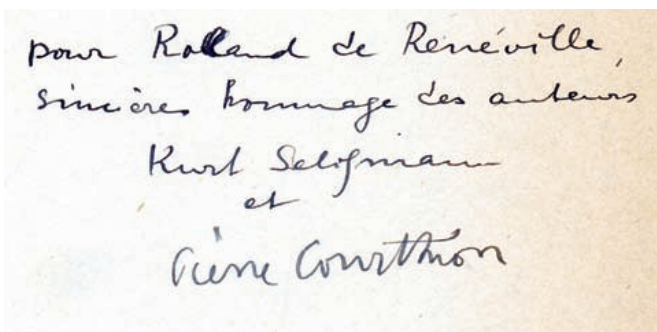 pour Rolland de Renéville,
sincères hommage des auteurs
Kurt Seligmann
et
Pierre Courthion